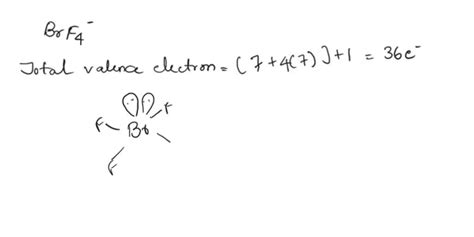 BrF₄⁻
Total valence electron = (7+4(7)]+1 = 36e⁻
F
F Br
F